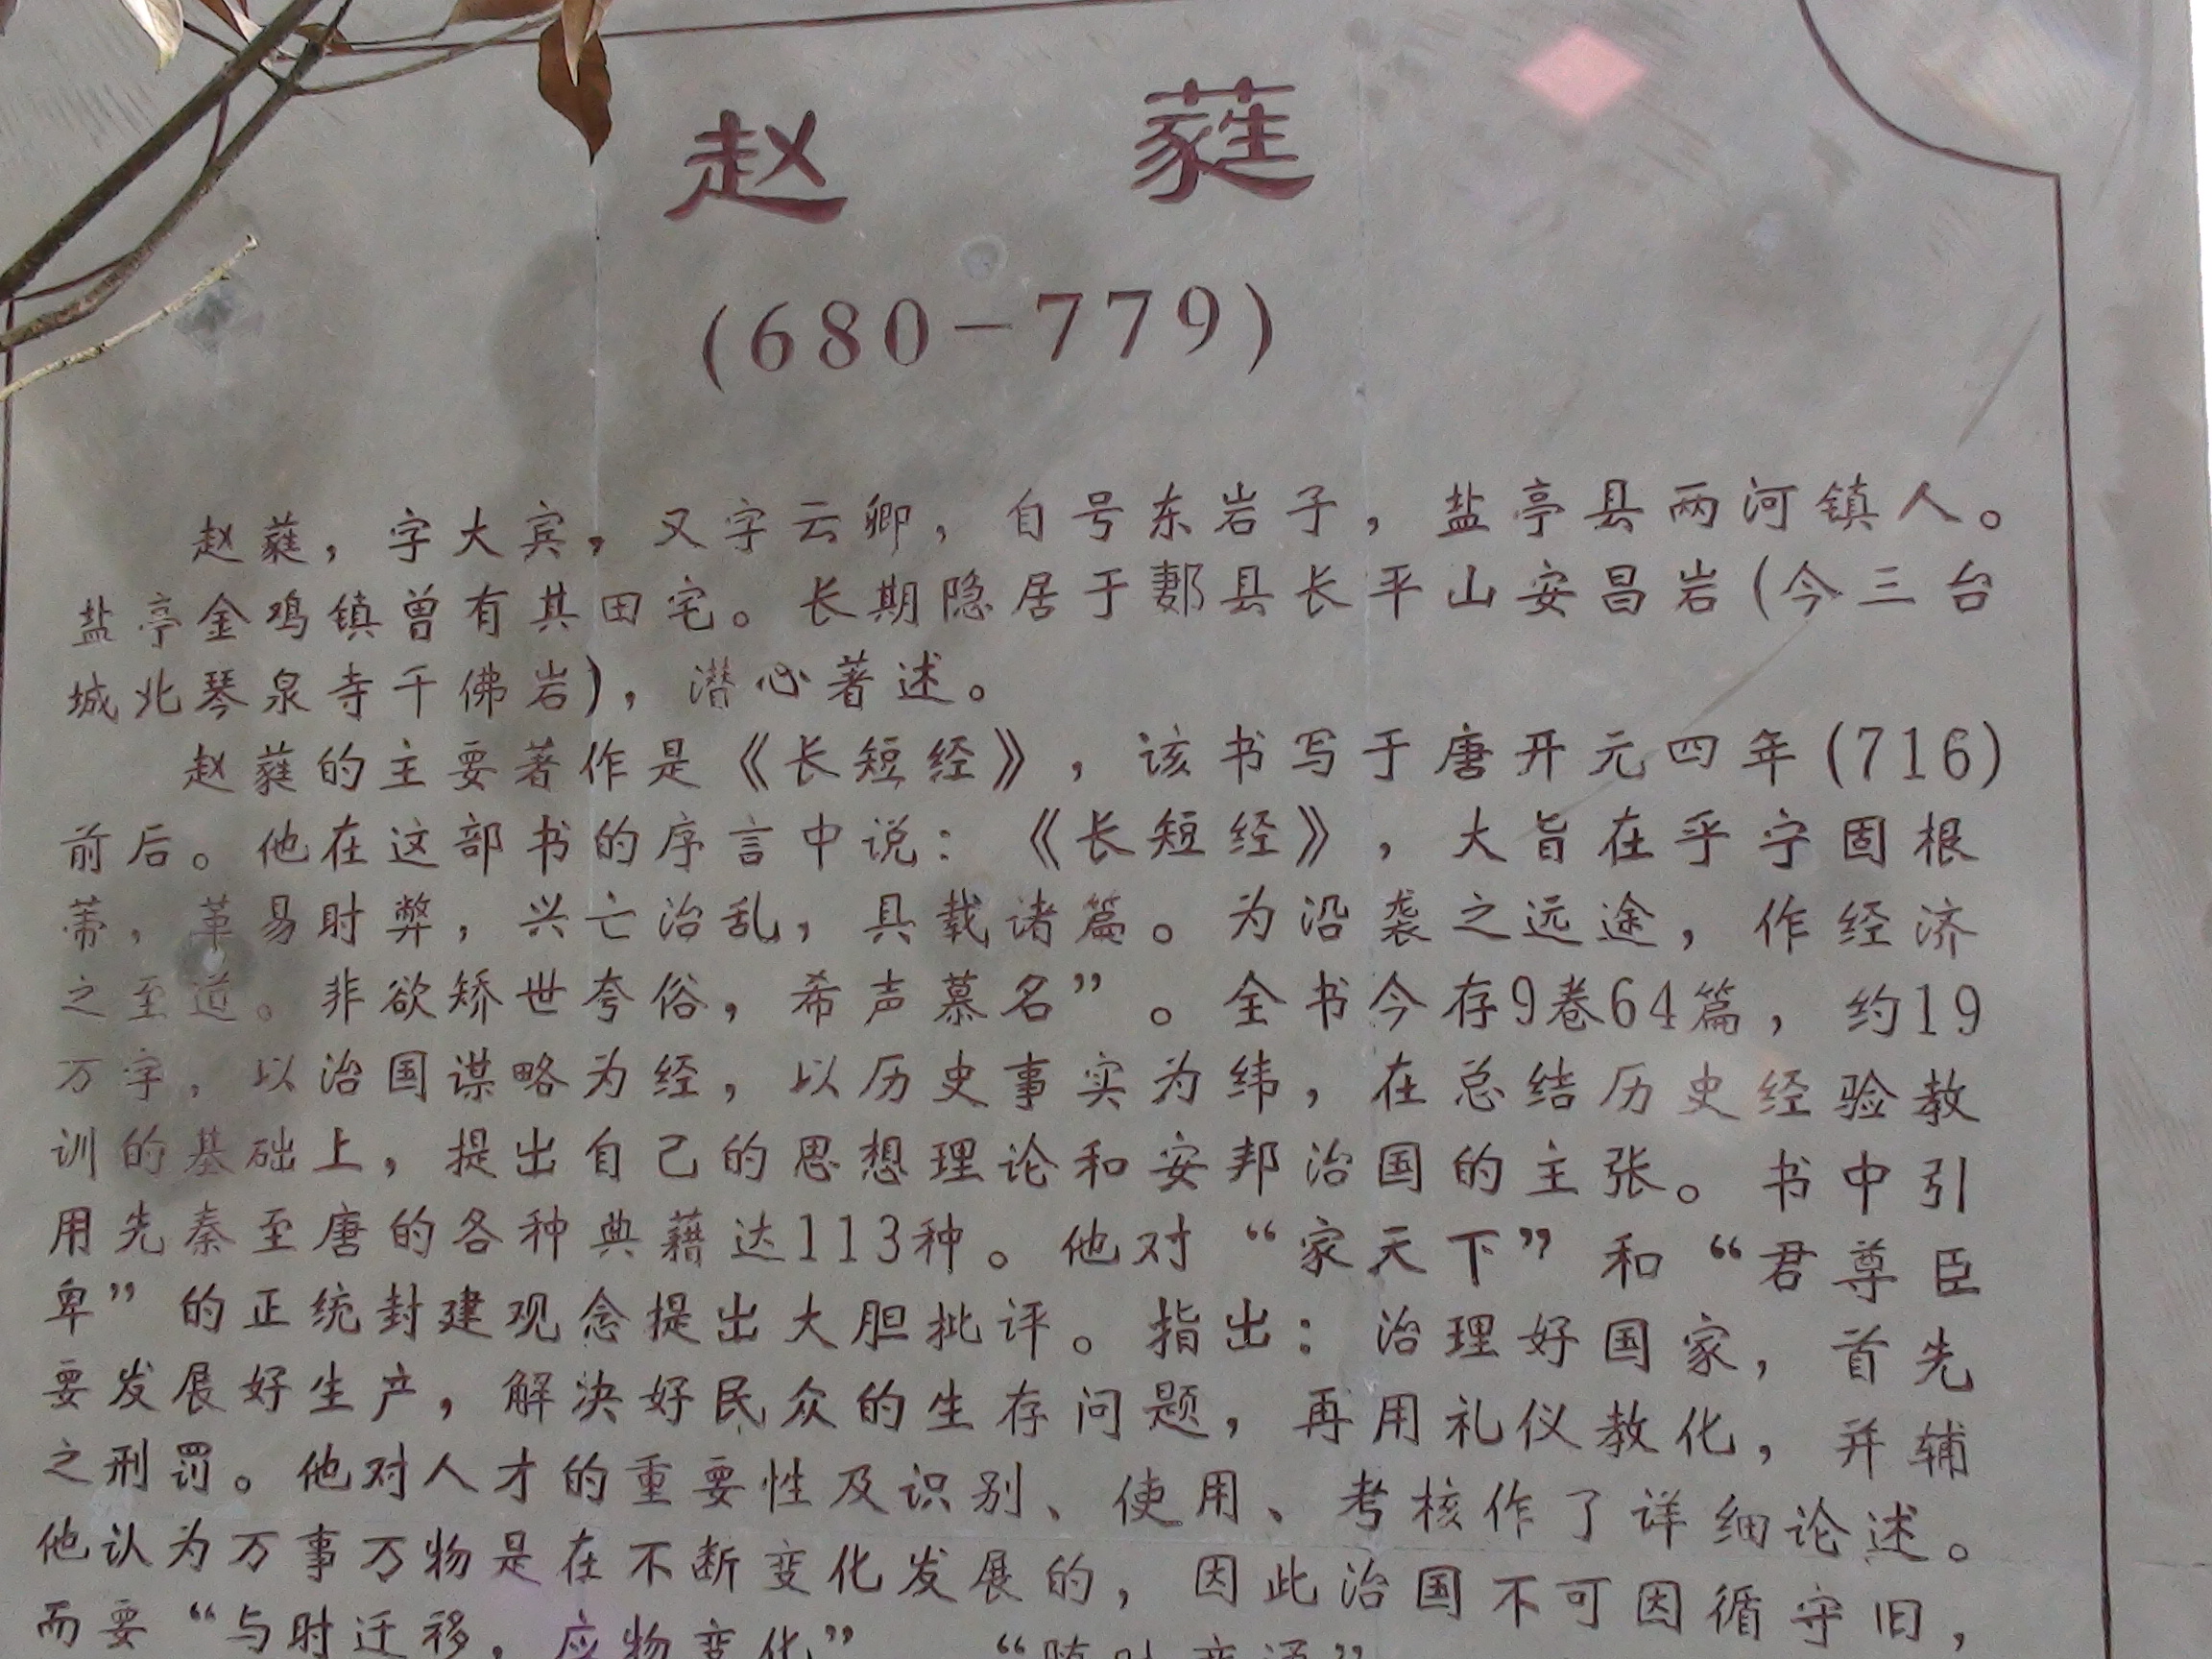 赵 蕤
(680-779)
赵蕤，字大宾，又字云卿，自号东岩子，盐亭县两河镇人。
盐亭金鸡镇曾有其田宅。长期隐居于郪县长平山安昌岩(今三台
城北琴泉寺千佛岩)，潜心著述。
赵蕤的主要著作是《长短经》，该书写于唐开元四年(716)
前后。他在这部书的序言中说：《长短经》，大旨在乎宁固根
蒂，革易时弊，兴亡治乱，具载诸篇。为沿袭之远途，作经济
之至道。非欲矫世夸俗，希声慕名”。全书今存9卷64篇，约19
万字，以治国谋略为经，以历史事实为纬，在总结历史经验教
训的基础上，提出自己的思想理论和安邦治国的主张。书中引
用先秦至唐的各种典藉达113种。他对“家天下”和“君尊臣
卑”的正统封建观念提出大胆批评。指出：治理好国家，首先
要发展好生产，解决好民众的生存问题，再用礼仪教化，并辅
之刑罚。他对人才的重要性及识别、使用、考核作了详细论述。
他认为万事万物是在不断变化发展的，因此治国不可因循守旧，
而要“与时迁移，应物变化”、“随时变通”